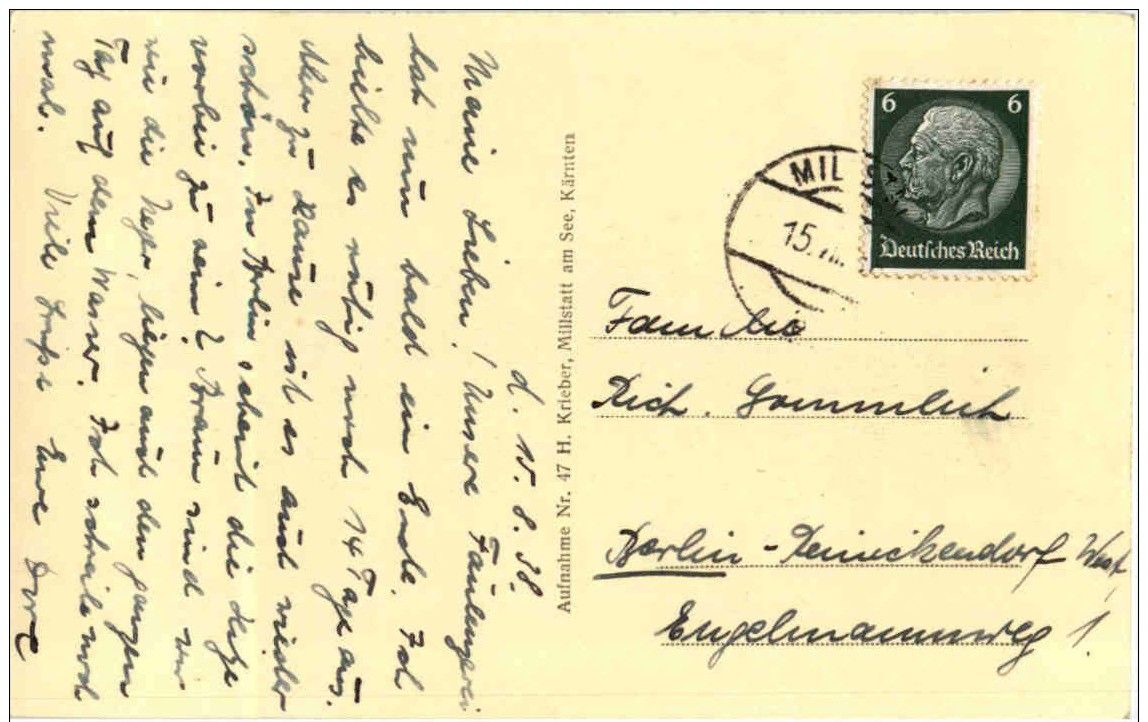 d. 15.8.38.
Meine Lieben! Unsere Faulenzerei
hat nun bald ein Ende. Ich
hielte es ruhig noch 14 Tage aus.
Aber zu Hause ist es auch wieder
schön. In Berlin scheint die Hitze
vorbei zu sein? Braun sind wir
wie die Neger, liegen auch den ganzen
Tag auf dem Wasser. Ich schreibe noch
mal. Viele Grüße Eure Dore
Aufnahme Nr. 47 H. Krieber, Millstatt am See, Kärnten
6 6
Deutsches Reich
MIL
15. VIII.
Familie
Rich. Gommlich
Berlin-Reinickendorf West,
Engelmannweg 1.